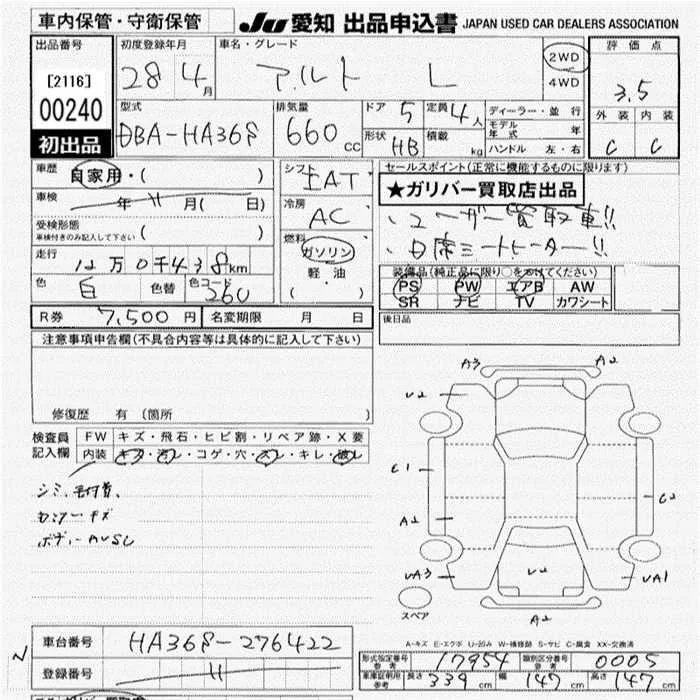 車内保管・守衛保管
JU 愛知 出品申込書 JAPAN USED CAR DEALERS ASSOCIATION
出品番号
[2116]
00240
初出品
初度登録年月
28年4月
車名・グレード
アルト L
2WD
4WD
評価点
3.5
外装 内装
C C
型式
DBA-HA36S
排気量
660cc
ドア 5
定員 4人
形状 HB
積載 kg
ディーラー・並行
モデル年式 年
ハンドル 左・右
車歴
自家用・( )
車検
年 月( 日)
受検形態
車検付きのみ記入して下さい ( )
走行
12万0千438km
色 白 色替 色コード 26U
シフト IAT
冷房 AC
燃料
ガソリン
軽油
( )
セールスポイント(正常に機能するものに限ります)
★ガリバー買取店出品
、ユーザー買取車!!
、D席シートヒーター!!
装備品(純正品に限り○をつけてください)
PS PW エアB AW
SR ナビ TV カワシート
R券 7,500円 名変期限 月 日
後日品
注意事項申告欄(不具合内容等は具体的に記入して下さい)
修復歴 有(箇所 )
検査員
記入欄
FW キズ・飛石・ヒビ割・リペア跡・X要
内装 キズ・汚レ・コゲ・穴・スレ・キレ・破レ
シミ、毛付着、
センターキズ
ボディーAUSC
A3 A2
U2
C1
A2
C2
UA3
U2
UA1
A2
スペア
A-キズ E-エクボ U-凹み W-補修跡 S-サビ C-腐食 XX-交換済
N
車台番号 HA36S-276422
登録番号
形式指定番号 参考 17954 類別区分番号 参考 0005
車庫証明用 参考 長さ 339cm 幅 147cm 高さ 147cm